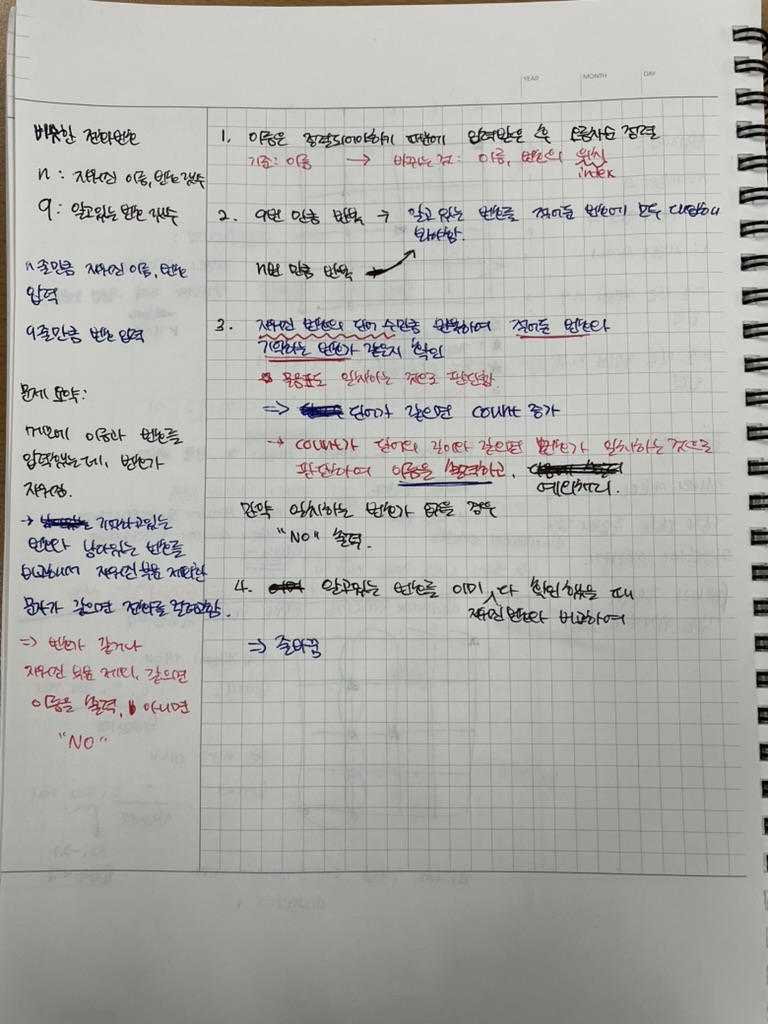 YEAR MONTH DAY
비슷한 전화번호
n : 지워진 이름, 번호 갯수
q : 알고있는 번호 갯수
n줄만큼 지워진 이름, 번호
입력
q줄만큼 번호 입력
문제 요약:
메모에 이름과 번호를
입력했는데, 번호가
지워짐.
→ 기억하고있는
번호와 남아있는 번호를
비교해서 지워진 부분 제외한
문자가 같으면 전화를 걸려고함.
⇒ 번호가 같거나
지워진 부분 제외, 같으면
이름을 출력, 아니면
"NO"
1. 이름은 정렬되어야하기 때문에 입력받은 후 오름차순 정렬
기준: 이름 → 바꾸는것: 이름, 번호의 위치
index
2. q번 만큼 반복 → 알고 있는 번호를 적어둔 번호에 모두 대입해
봐야함.
n번 만큼 반복
3. 지워진 번호의 단어 수만큼 반복하여 적어둔 번호와
기억하는 번호가 같은지 확인
물음표도 일치하는 것으로 판단함.
⇒ 단어가 같으면 count 증가
→ count가 단어의 길이와 같으면 번호가 일치하는 것으로
판단하여 이름을 출력하고,
예외처리.
만약 일치하는 번호가 없을 경우
"NO" 출력.
4. 알고있는 번호를 이미 다 확인했을 때
지워진 번호와 비교하여
⇒ 줄바꿈